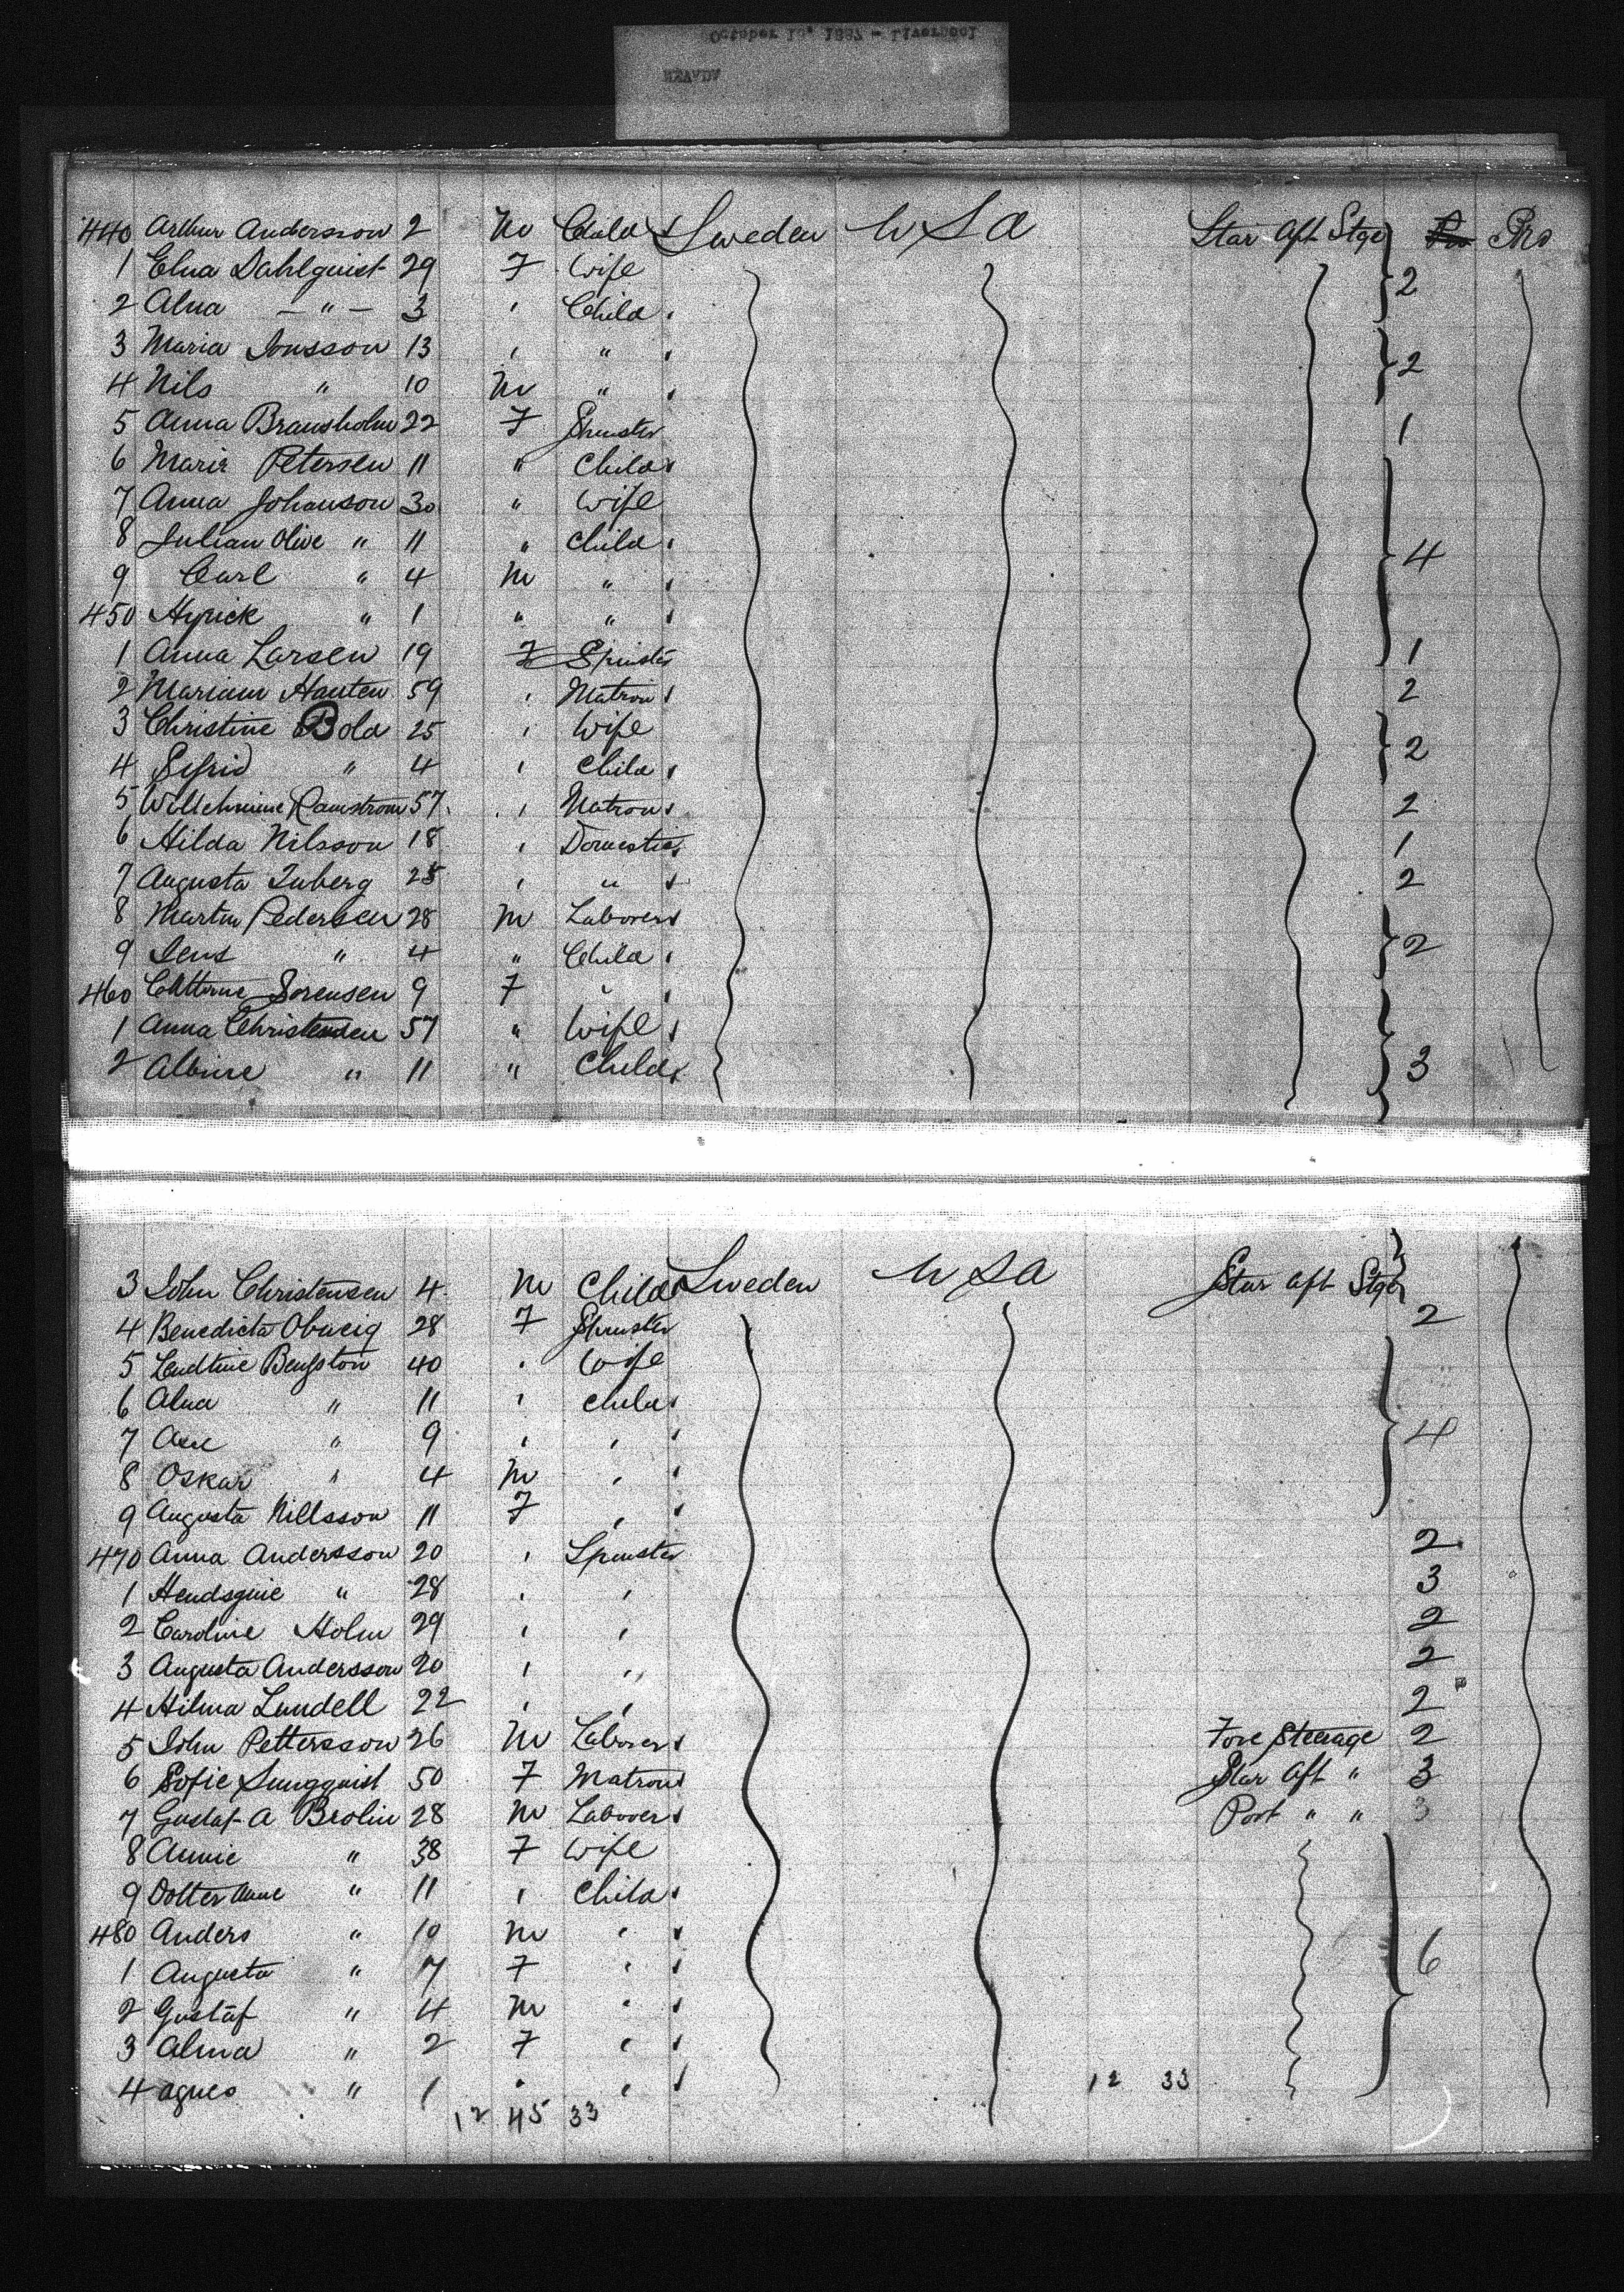 October 13, 1887 - Liverpool
NEVADA
440 Arthur Andersson 2 M Child Sweden U S A Star Aft Stge Pro
1 Elna Dahlquist 29 F Wife 2
2 Alna — " — 3 ' Child
3 Maria Jonsson 13 ' " 2
4 Nils " 10 M "
5 Anna Bramsholm 22 F Spinster 1
6 Marie Petersen 11 " Child
7 Anna Johanson 30 " Wife
8 Julian Olive " 11 " Child 4
9 Carl " 4 M "
450 Hyrick " 1 " "
1 Anna Larsen 19 F Spinster 1
2 Mariam Hanten 59 ' Matron 2
3 Christine Bold 25 ' Wife 2
4 Sigrid " 4 ' Child
5 Willehmine Ramstrom 57 ' Matron 2
6 Hilda Nilsson 18 ' Domestic 1
7 Augusta Inberg 25 ' " 2
8 Martin Pedersen 28 M Laborer 2
9 Jens " 4 " Child
460 Sorensen 9 F "
1 Anna Christensen 57 " Wife
2 Albine " 11 " Child 3
3 John Christensen 4 M Child Sweden U S A Star Aft Stge
4 Benedicta 28 F Spinster 2
5 Bengston 40 ' Wife
6 Alna " 11 ' Child
7 Axel " 9 ' ' 4
8 Oskar " 4 M '
9 Augusta Nillsson 11 F '
470 Anna Andersson 20 ' Spinster 2
1 " 28 ' ' 3
2 Caroline Holm 29 ' ' 2
3 Augusta Andersson 20 ' " 2
4 Hilma Lundell 22 ' ' 2
5 John Pettersson 26 M Laborer Fore Steerage 2
6 Sofie Lungquist 50 F Matron Star Aft " 3
7 Gustaf A Brolin 28 M Laborer Port " " 3
8 Annie " 38 F Wife
9 Dotter Anne " 11 ' Child
480 Anders " 10 M '
1 Augusta " 7 F ' 6
2 Gustaf " 4 M '
3 Alma " 2 F '
4 Agnes " 1 ' ' 12 33
12 45 33